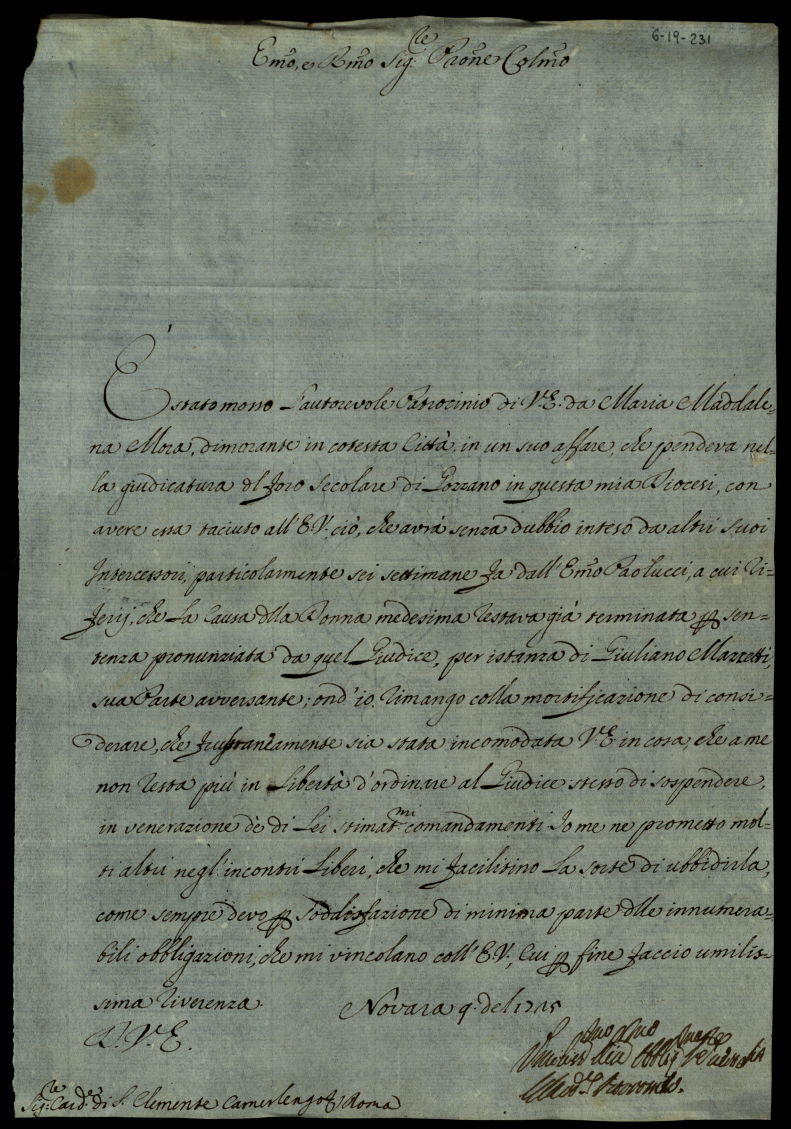 6-19-231
Em̃o, e Rm̃o Sig:re Prõne Colm̃o
È stato mosso l'autorevole Patrocinio di V.E. da Maria Maddale=
na Mora, dimorante in cotesta Città, in un suo affare, che pendeva nel=
la giudicatura dl foro Secolare di Gozzano in questa mia Diocesi, con
avere essa taciuto all'E.V. ciò, che avrà senza dubbio inteso da altri suoi
Intercessori, particolarmente sei settimane fa dall'Em̃o Paolucci, a cui ri=
ferij, che la Causa dlla Donna medesima restava già terminata ꝑ sen=
tenza pronunziata da quel Giudice, per istanza di Giuliano Mazzetti,
sua Parte avversante; ond'io rimango colla mortificazione di consi=
derare, che frustraneamente sia stata incomodata V.E. in cosa, che a me
non resta più in libertà d'ordinare al Giudice stesso di sospendere,
in venerazione dè di Lei stimat.mi comandamenti. Io me ne prometto mol=
ti altri negl'incontri liberi, che mi facilitino la sorte di ubbidirla,
come sempre devo ꝑ soddisfazione di minima parte dlle innumera=
bili obbligazioni, che mi vincolano coll'E.V., Cui ꝑ fine faccio umilis=
sima riverenza.
Novara 9.
D. V. E.
Sig:re Card.le di S. Clemente Camerlengo ꝑ Roma